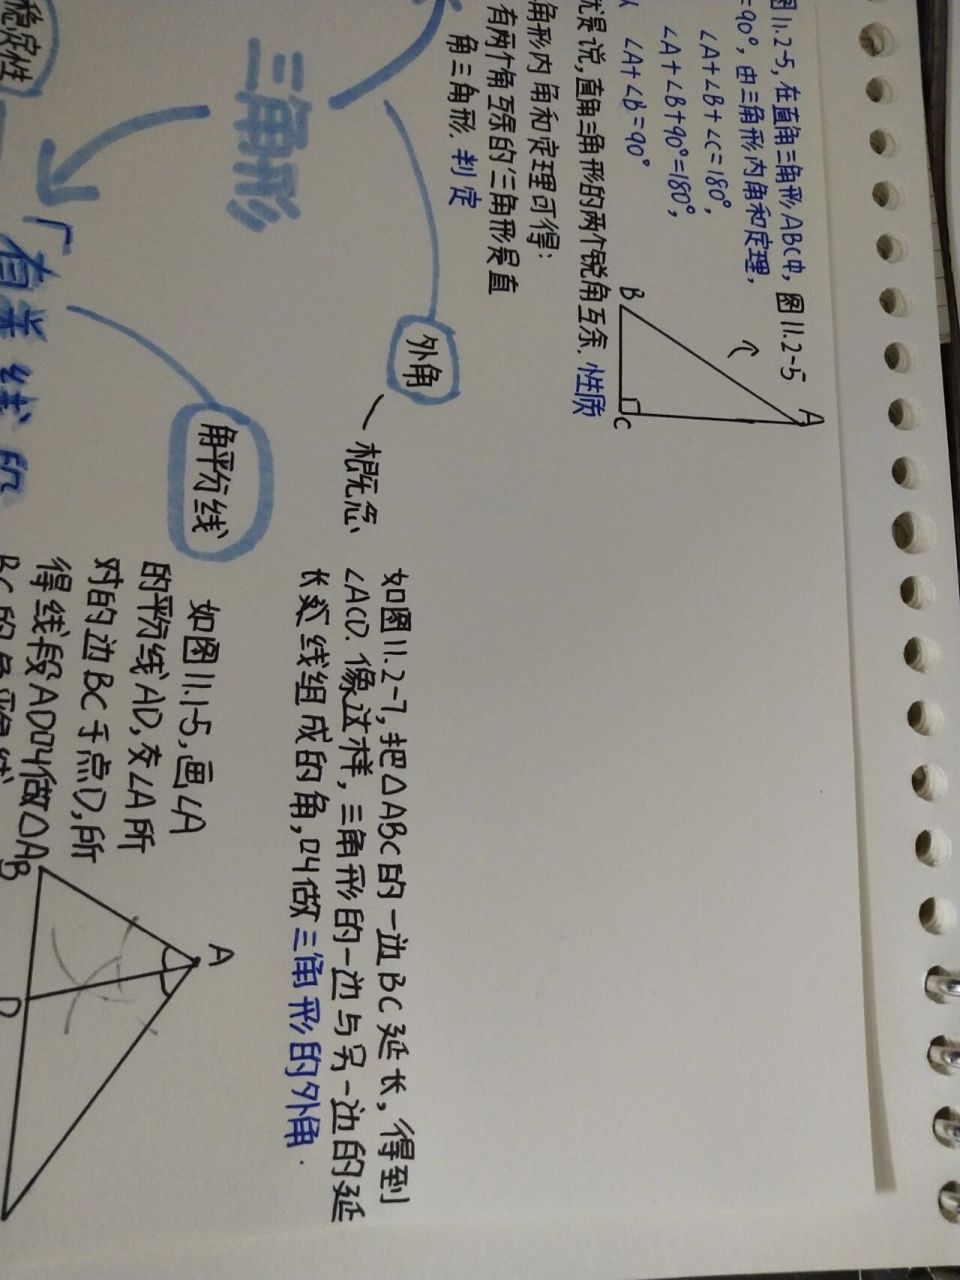 图11.2-5,在直角三角形ABC中,
=90°,由三角形内角和定理,
∠A+∠B+∠C=180°,
∠A+∠B+90°=180°,
∠A+∠B=90°
就是说,直角三角形的两个锐角互余.性质
角形内角和定理可得:
有两个角互余的三角形是直
角三角形.判定
图11.2-5
A
B
C
三角形
外角
概念
如图11.2-7,把△ABC的一边BC延长,得到
∠ACD.像这样,三角形的一边与另一边的延
长线组成的角,叫做三角形的外角.
稳定性
「有关线段
角平分线
如图11.1-5,画∠A
的平分线AD,交∠A所
对的边BC于点D,所
得线段AD叫做△AB
A
B
D